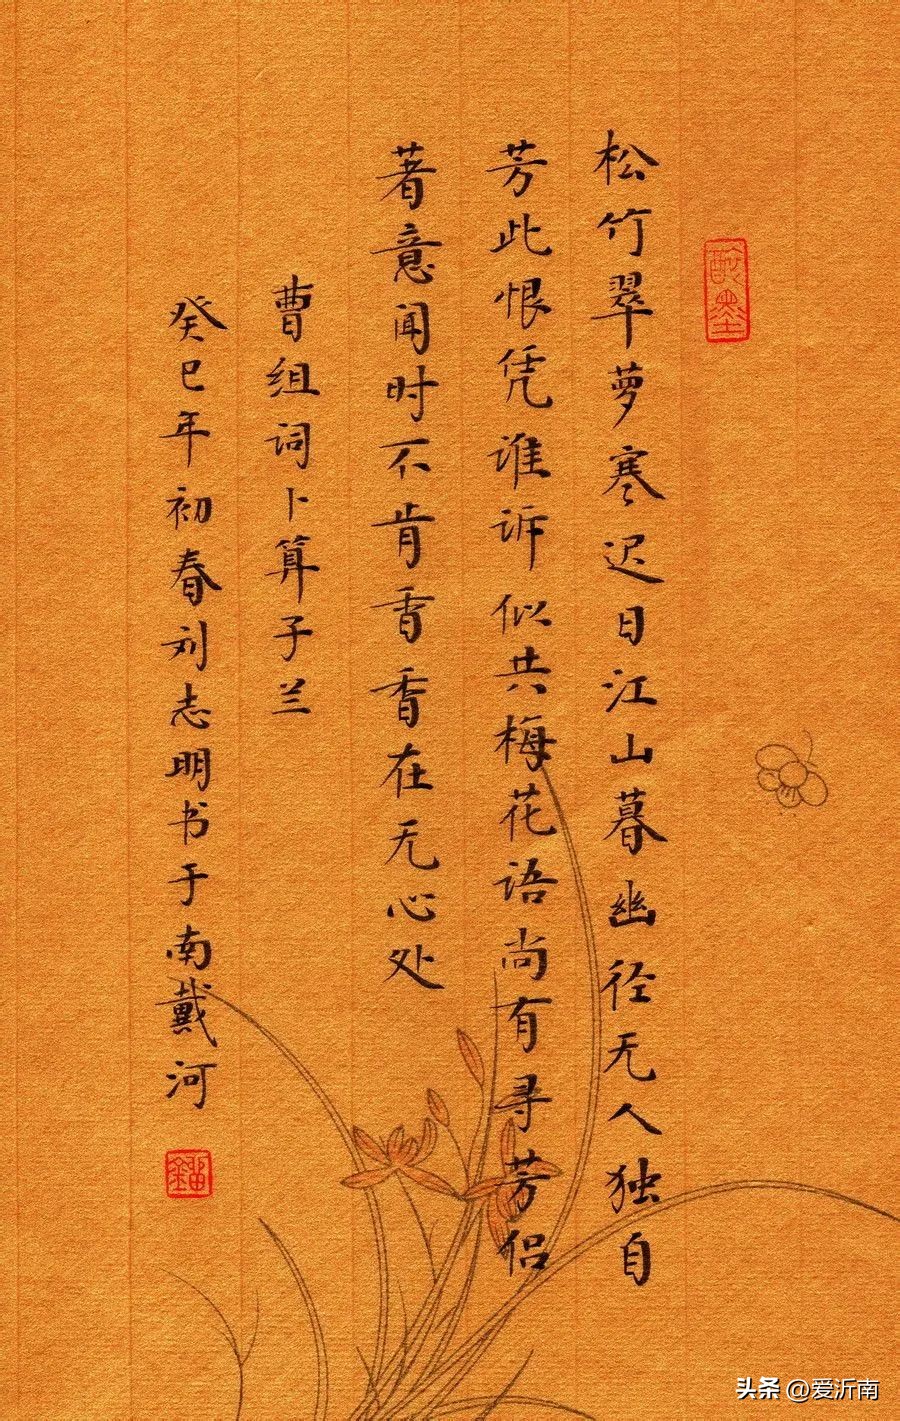 松竹翠萝寒迟日江山暮幽径无人独自
芳此恨凭谁诉似共梅花语尚有寻芳侣
著意闻时不肯香香在无心处
曹组词卜算子兰
癸巳年初春刘志明书于南戴河
头条 @爱沂南